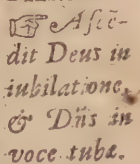 ☞ Aſcē-
dit Deus in
iubilatione,
& Dñs in
voce tubæ.